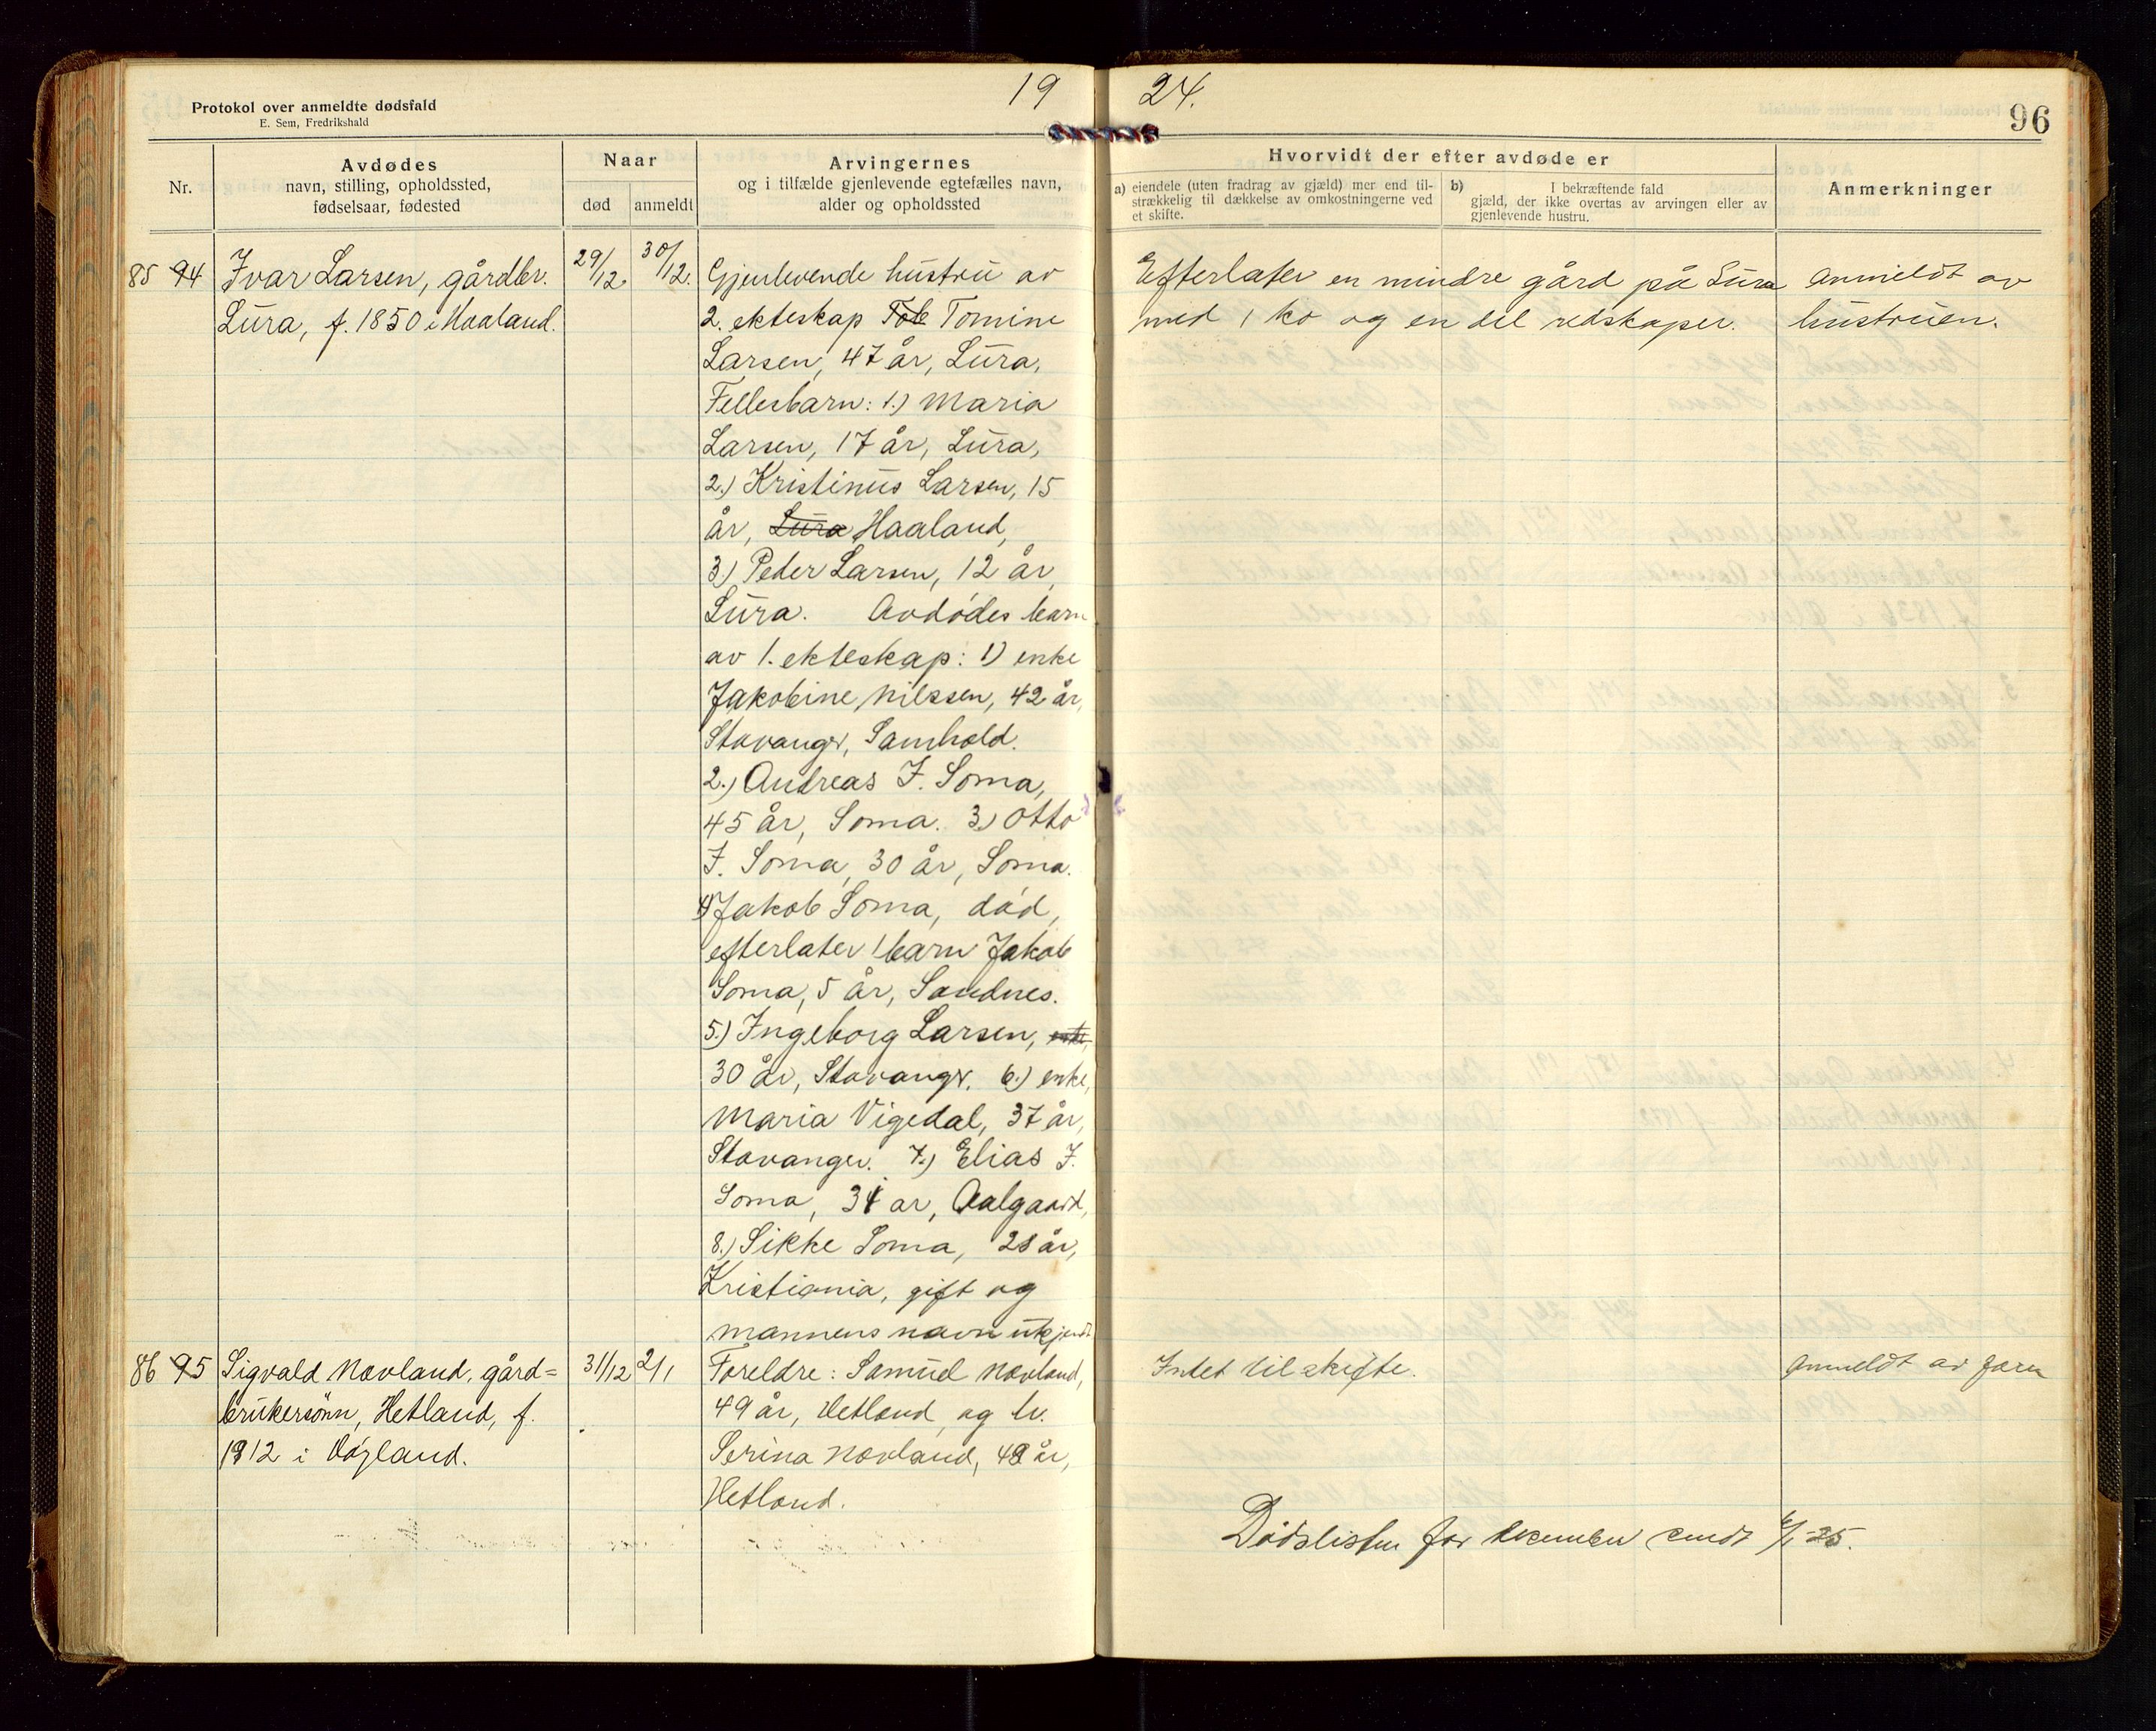 Protokol over anmeldte dødsfald
E. Sem, Fredrikshald
19 24.
96
Nr.
Avdødes
navn, stilling, opholdssted,
fødselsaar, fødested
Naar
død
anmeldt
Arvingernes
og i tilfælde gjenlevende egtefælles navn,
alder og opholdssted
Hvorvidt der efter avdøde er
a) eiendele (uten fradrag av gjæld) mer end til-
strækkelig til dækkelse av omkostningerne ved
et skifte.
b) I bekræftende fald
gjæld, der ikke overtas av arvingen eller av
gjenlevende hustru.
Anmerkninger
85 94
Ivar Larsen, gårdbr.
Lura, f. 1850 i Haaland.
29/12
30/12.
Gjenlevende hustru av
2. ekteskap Tob Tomine
Larsen, 47 år, Lura,
Fellesbarn: 1.) Maria
Larsen, 17 år, Lura,
2.) Kristinus Larsen, 15
år, Lura Haaland,
3.) Peder Larsen, 12 år,
Lura. Avdødes barn
av 1. ekteskap: 1) enke
Jakobine Nilssen, 42 år,
Stavanger, Samhold.
2.) Andreas I. Soma,
45 år, Soma. 3.) Otto
I. Soma, 30 år, Soma.
4) Jakob Soma, død,
efterlater 1 barn Jakob
Soma, 5 år, Sandnes.
5.) Ingeborg Larsen, enke,
30 år, Stavanger. 6.) enke,
Maria Vigedal, 37 år,
Stavanger. 7.) Elias I.
Soma, 34 år, Aalgaard,
8.) Sikke Soma, 28 år,
Kristiania, gift og
mannens navn ukjendt
Efterlater en mindre gård på Lura
med 1 ko og en del redskaper.
Anmeldt av
hustruen.
86 95
Sigvald Novland, gård=
brukersønn, Hetland, f.
1912 i Øgland.
31/12
2/1
Foreldre: Samuel Novland,
49 år, Hetland og h.
Serina Novland, 48 år,
Hetland.
Intet til skifte.
Anmeldt av faren
Dødslisten for december sendt 6/1-25.